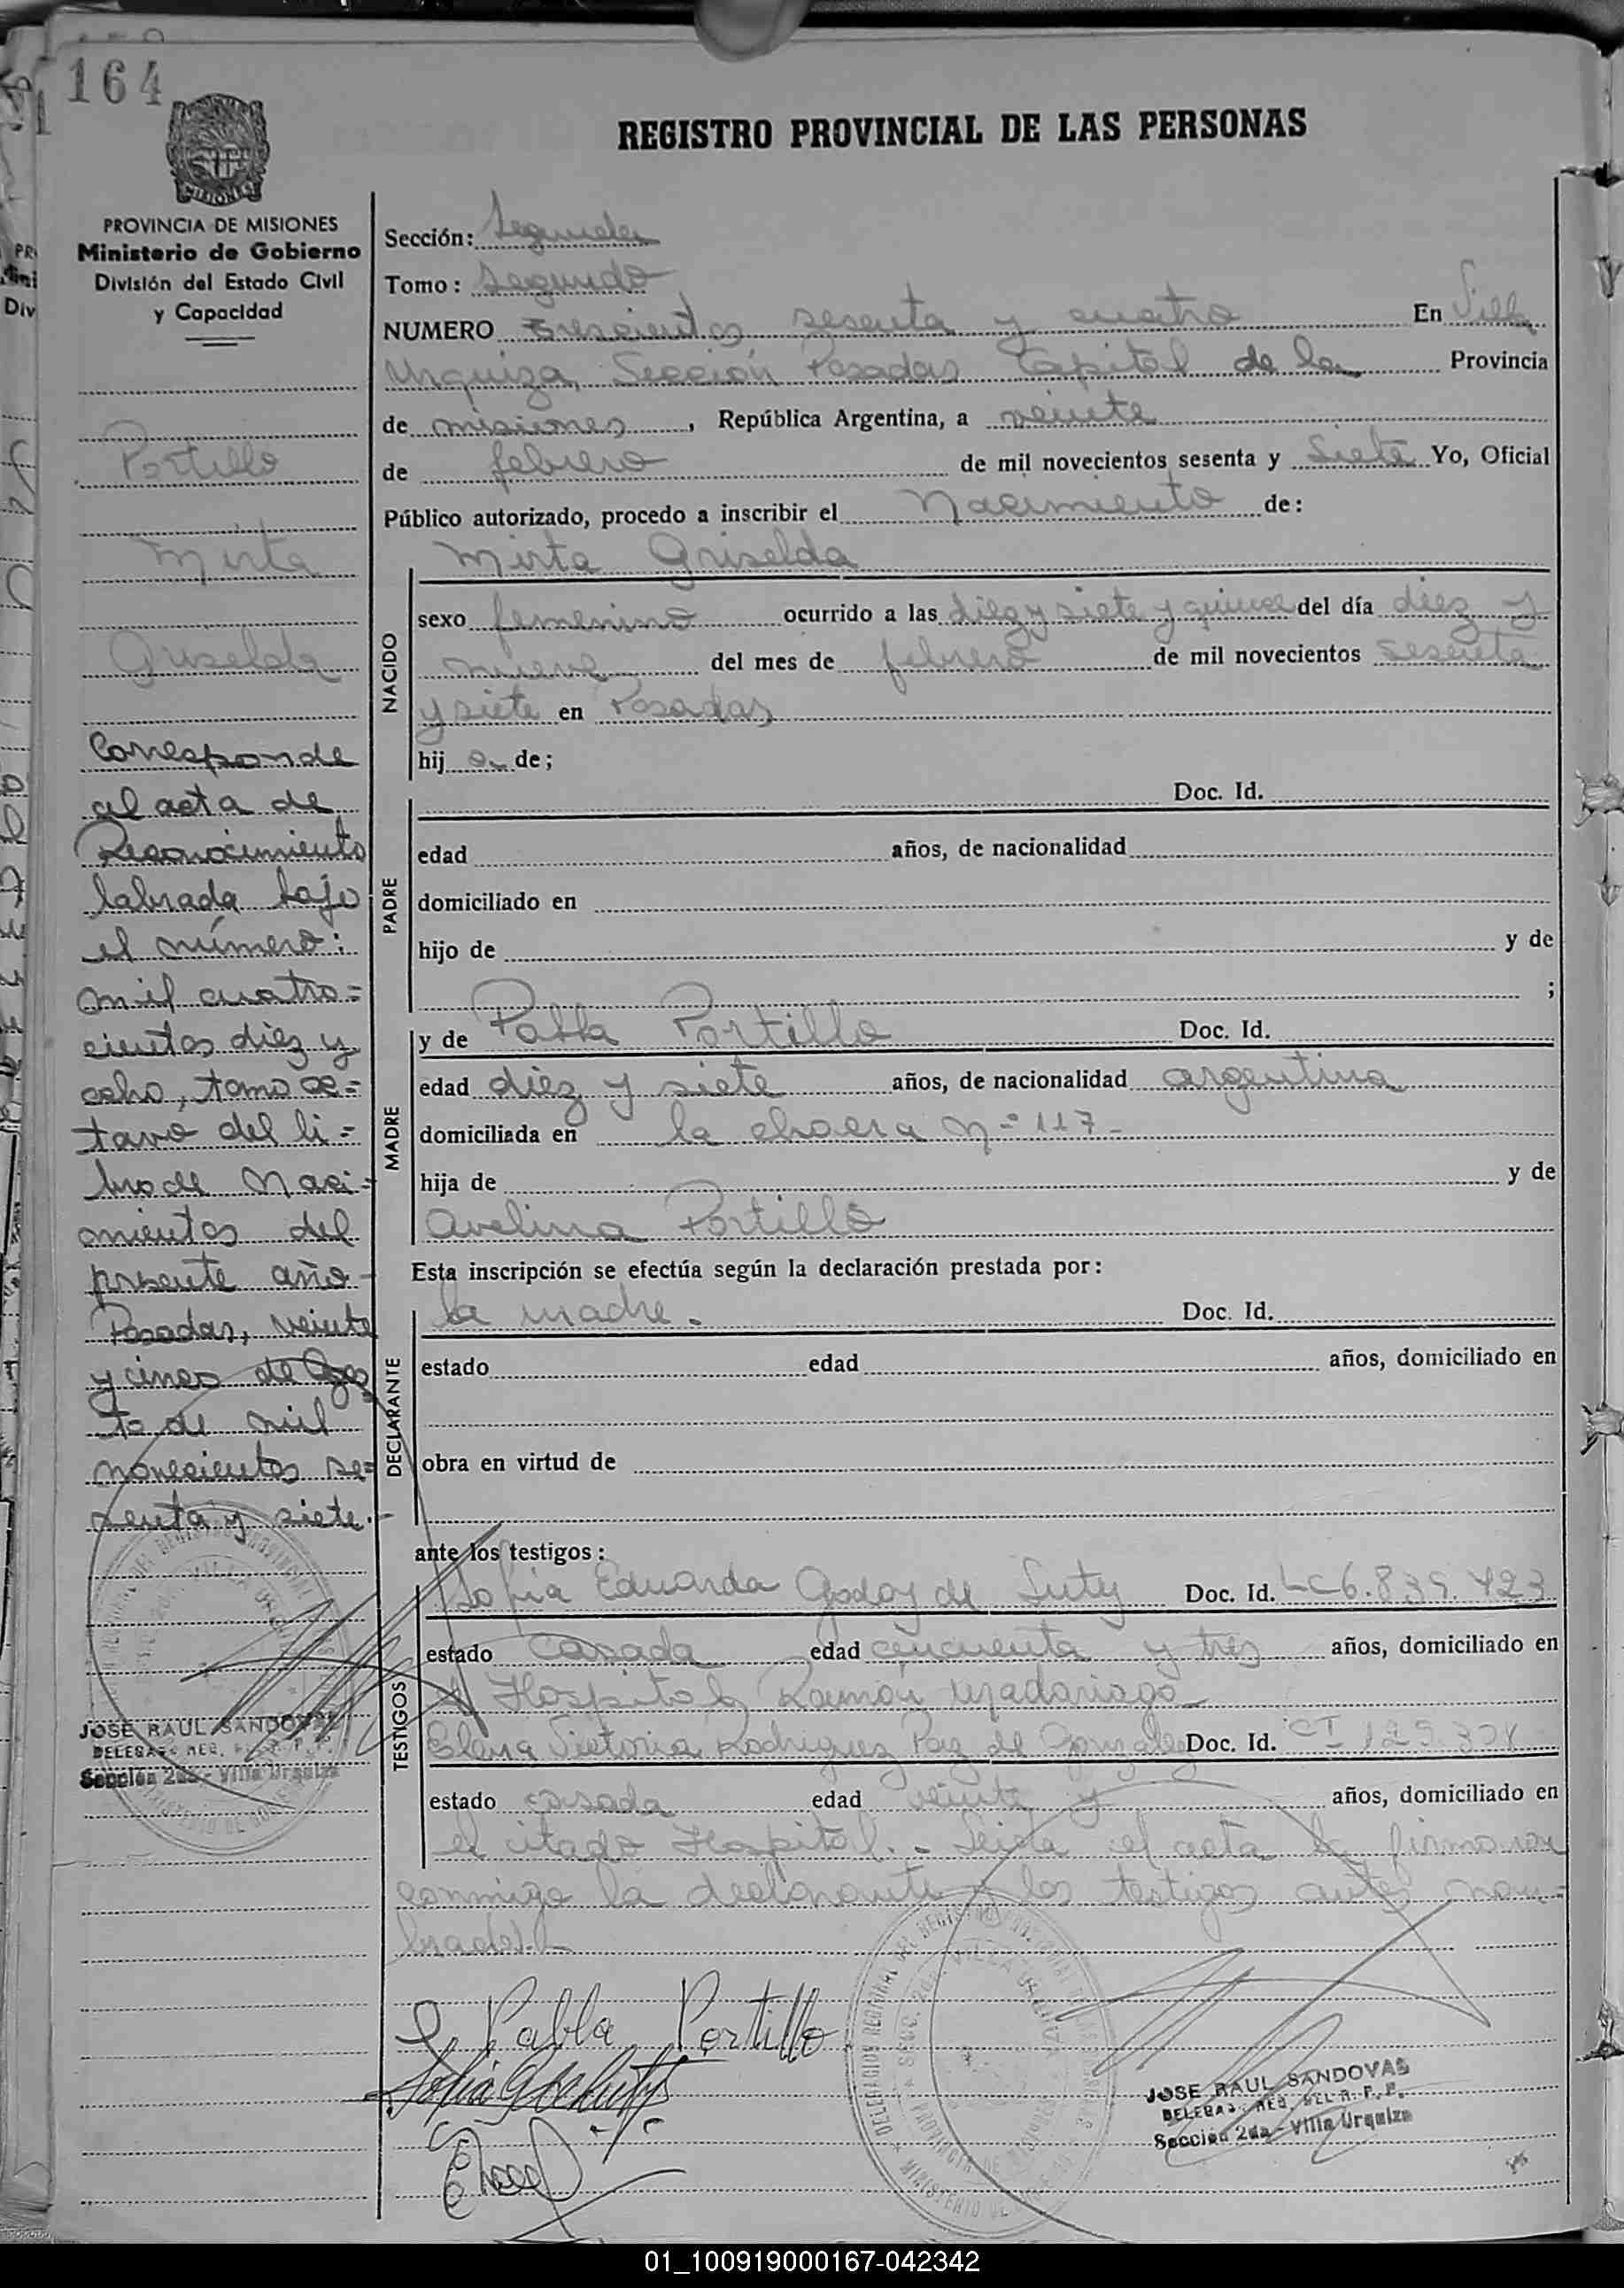 164
REGISTRO PROVINCIAL DE LAS PERSONAS
MISIONES
PROVINCIA DE MISIONES
Ministerio de Gobierno
División del Estado Civil
y Capacidad
Portillo
Mirta
Griselda
Corresponde
al acta de
Reconocimiento
labrada bajo
el número:
mil cuatro=
cientos diez y
ocho, tomo oc=
tavo del li=
bro de Naci=
mientos del
presente año-
Posadas, veinte
y cinco de Agos
to de mil
novecientos se=
senta y siete.-
JOSE RAUL SANDOVAL
Sección 2da - Villa Urquiza
Sección: Segunda
Tomo: Segundo
NUMERO Trescientos sesenta y cuatro En Villa
Urquiza, Sección Posadas Capital de la Provincia
de Misiones, República Argentina, a veinte
de febrero de mil novecientos sesenta y Siete Yo, Oficial
Público autorizado, procedo a inscribir el Nacimiento de:
NACIDO
Mirta Griselda
sexo femenino ocurrido a las diez y siete y quince del día diez y
nueve del mes de febrero de mil novecientos sesenta
y siete en Posadas
hij a de;
PADRE
Doc. Id.
edad años, de nacionalidad
domiciliado en
hijo de y de
;
MADRE
y de Pabla Portillo Doc. Id.
edad diez y siete años, de nacionalidad argentina
domiciliada en la chacra Nº 117-
hija de y de
Avelina Portillo
Esta inscripción se efectúa según la declaración prestada por:
DECLARANTE
la madre. Doc. Id.
estado edad años, domiciliado en
obra en virtud de
ante los testigos:
TESTIGOS
Sofia Eduarda Godoy de Suty Doc. Id. LC 6.839.423
estado casada edad cincuenta y tres años, domiciliado en
Hospital Ramón Madariaga
Elena Victoria Rodriguez Paz de Gonzalez Doc. Id. CI 129.308
estado casada edad veinte y años, domiciliado en
el citado Hospital.- Leida el acta la firmaron
conmigo la declarante y los testigos antes nom=
brados.-
Pabla Portillo
JOSE RAUL SANDOVAL
Sección 2da - Villa Urquiza
01_100919000167-042342